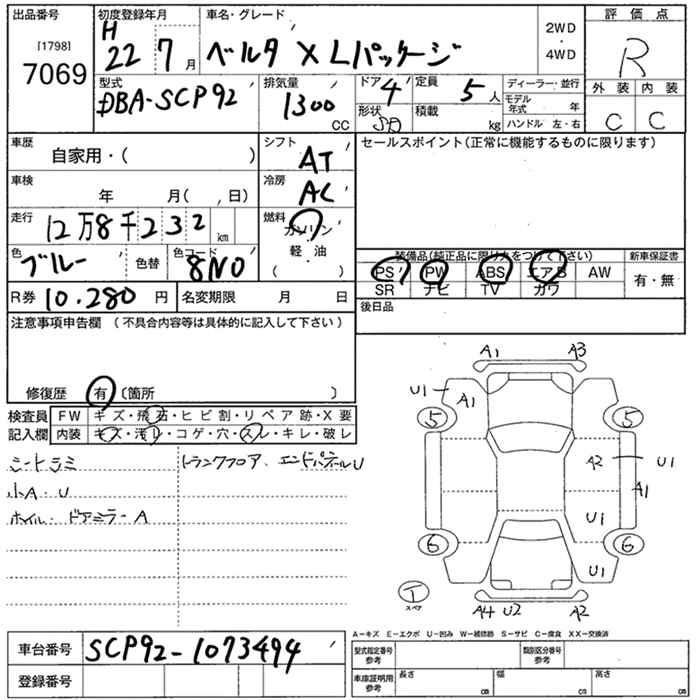 出品番号 初度登録年月 車名・グレード 2WD 評価点
[1798] 7069 H 22 7月 ベルタ X Lパッケージ ・ 4WD R
型式 排気量 ドア 4 定員 5人 ディーラー・並行 外装 内装
DBA-SCP92 1300 CC 形状 SD 積載 kg モデル年式 年 C C
ハンドル 左・右
車歴 シフト セールスポイント(正常に機能するものに限ります)
自家用・( ) AT
車検 冷房
年 月( , 日) AC
走行 12万8千232 km 燃料 ガソリン
色 ブルー 色替 色コード 8N0 軽・油 ( )
装備品(純正品に限り丸をつけて下さい) 新車保証書
PS PW ABS エアB AW 有・無
SR ナビ TV カワ
R券 10.280 円 名変期限 月 日 後日品
注意事項申告欄 (不具合内容等は具体的に記入して下さい)
修復歴 有 〔箇所 〕
検査員 FW キズ・飛石・ヒビ割・リペア跡・X要
記入欄 内装 キズ・汚レ・コゲ・穴・スレ・キレ・破レ
シートシミ トランクフロア、エンドパネルU
小A・U
ホイル・ドアミラーA
A1 A3
U1 A1
5 5
A2 U1
A1
U1
6 6
U1
T
スペア
A4 U2 A2
A−キズ E−エクボ U−凹み W−補修跡 S−サビ C−腐食 XX−交換済
車台番号 SCP92-1073494 型式指定番号 参考 類別区分番号 参考
登録番号 車庫証明用 参考 長さ cm 幅 cm 高さ cm